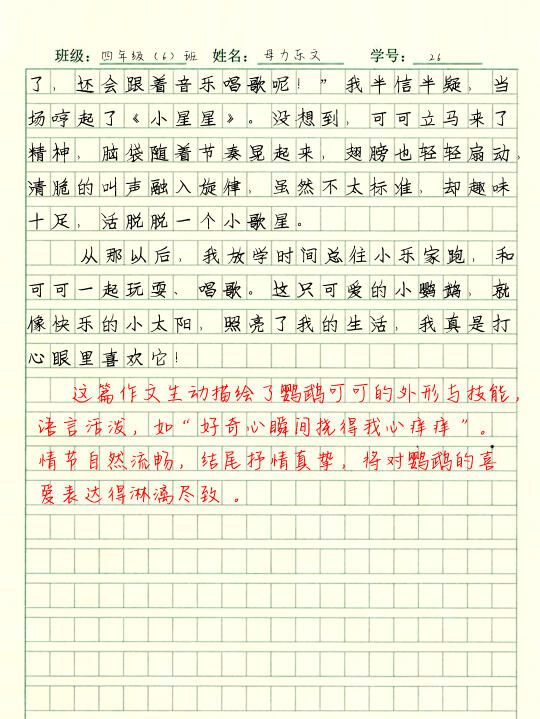 班级：四年级（6）班 姓名：母力乐文 学号：26
了，还会跟着音乐唱歌呢！”我半信半疑，当
场哼起了《小星星》。没想到，可可立马来了
精神，脑袋随着节奏晃起来，翅膀也轻轻扇动，
清脆的叫声融入旋律，虽然不太标准，却趣味
十足，活脱脱一个小歌星。
从那以后，我放学时间总往小乐家跑，和
可可一起玩耍、唱歌。这只可爱的小鹦鹉，就
像快乐的小太阳，照亮了我的生活，我真是打
心眼里喜欢它！
这篇作文生动描绘了鹦鹉可可的外形与技能，
语言活泼，如“好奇心瞬间挠得我心痒痒”。
情节自然流畅，结尾抒情真挚，将对鹦鹉的喜
爱表达得淋漓尽致。